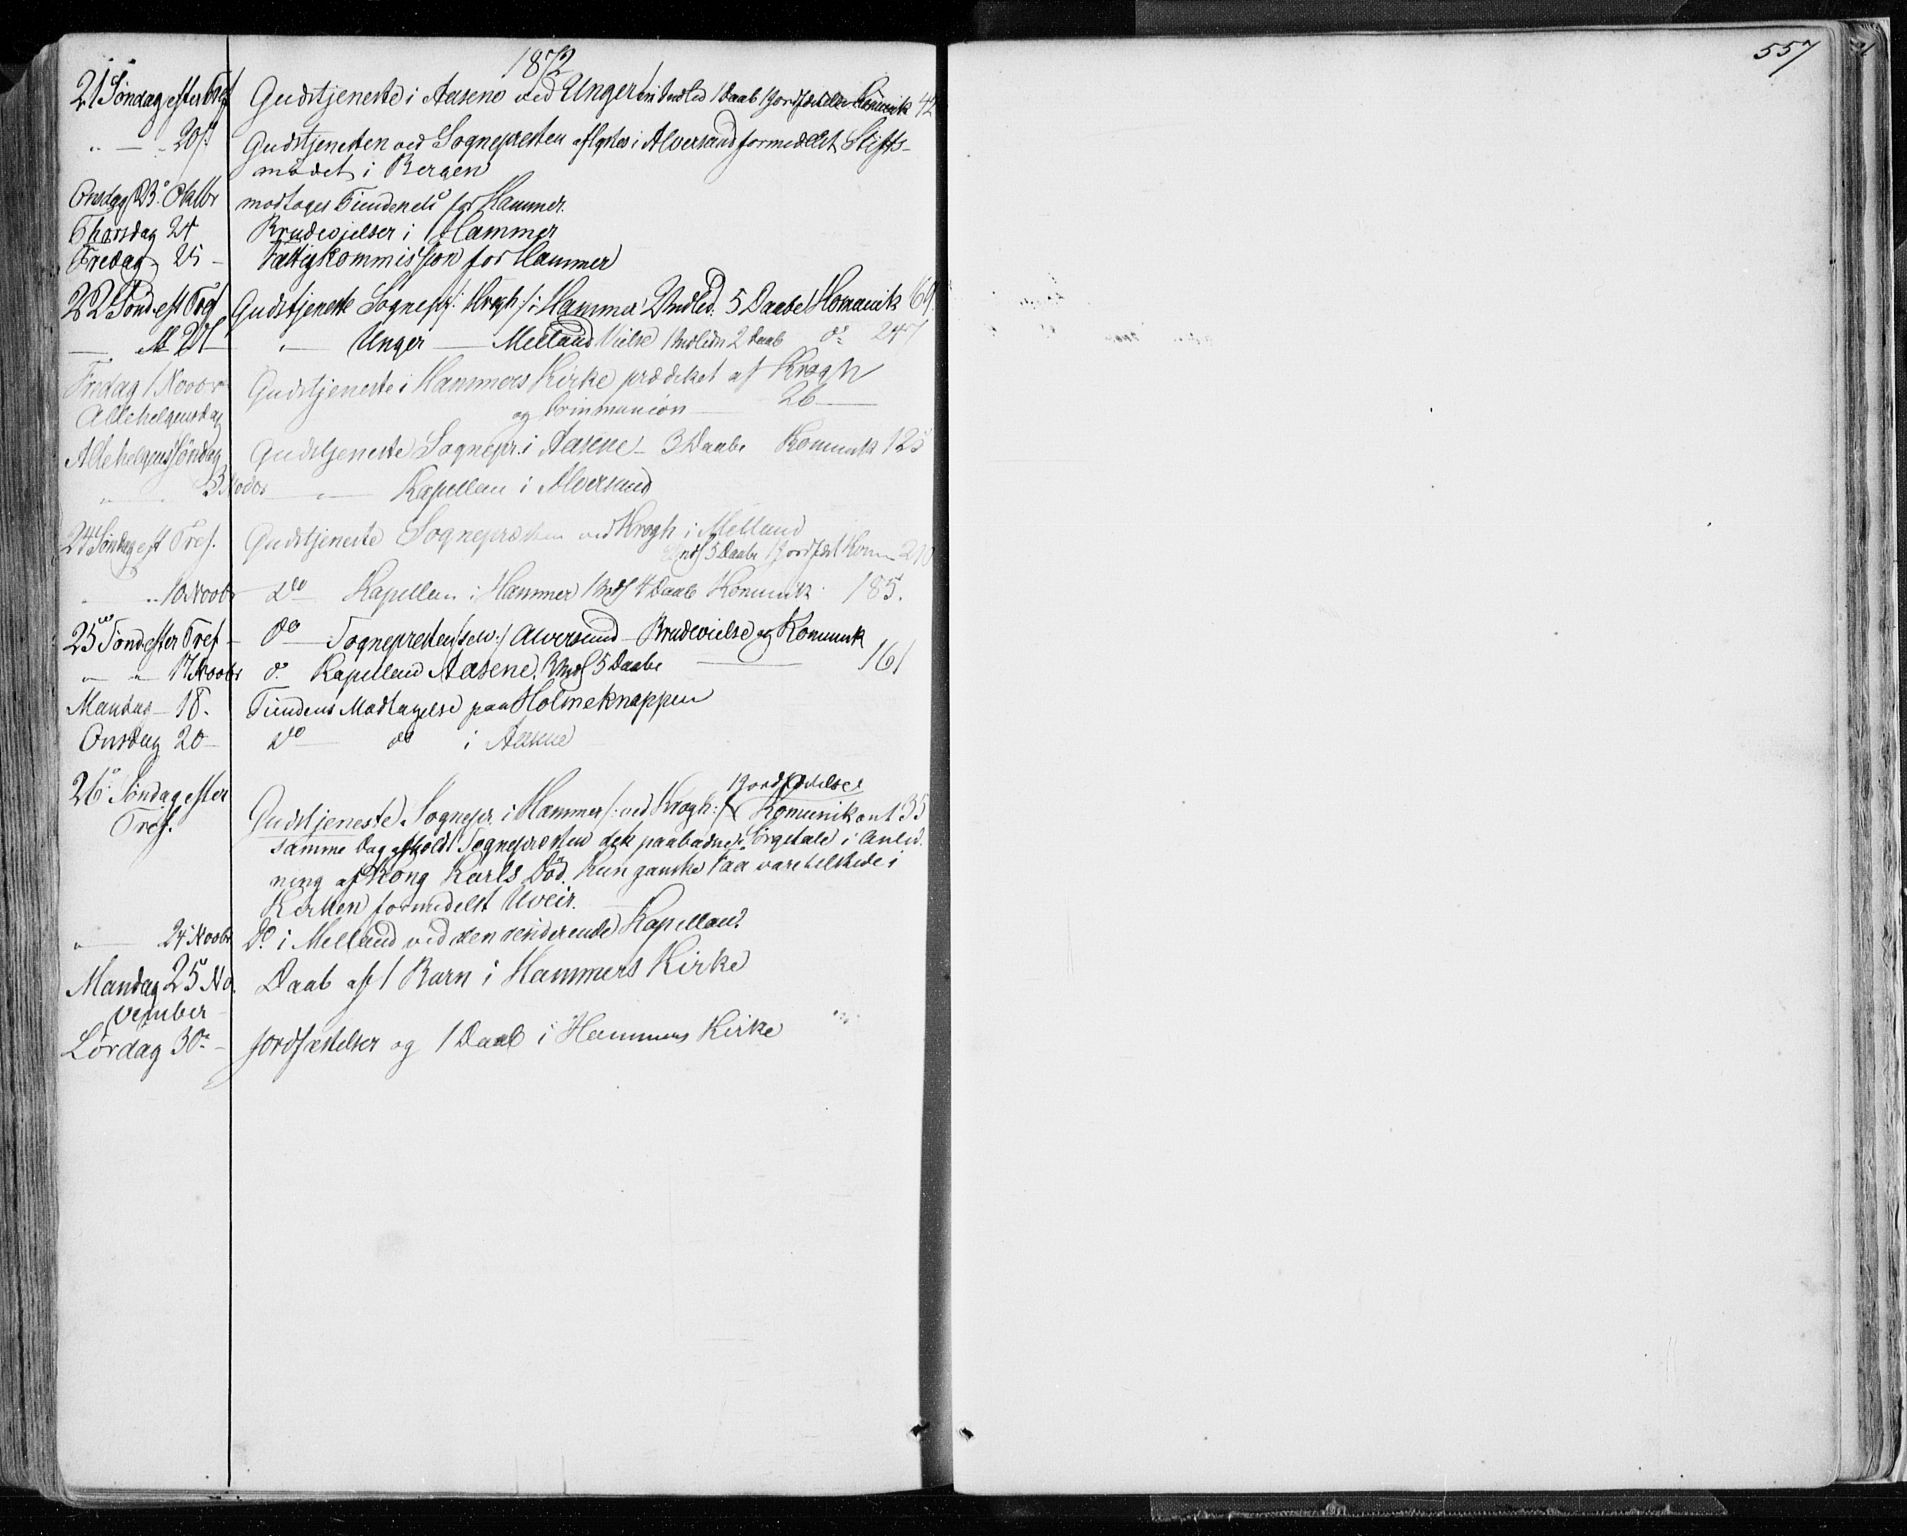 557
1872
21 Søndag efter Tref Gudstjeneste i Aasene ved Unger 1 Daab Komunik 42
" — 20de Gudstjenesten ved Sognepresten aflyses i Alversund formedelst Stifts-
mødet i Bergen
Onsdag 23de Oktbr modtages Tiendens for Hammer.
Thorsdag 24 Brudevielser i Hammer
Fredag 25 — Fattigkommission for Hammer
22 Sønd eft Tref Gudstjeneste Sognepr /: Krogh :/ i Hammer Indled. 5 Daabe Komunik 69
— 27 " Unger — Melland Vielse 2 Daab do 247
Fredag 1 Novbr Gudstjeneste i Hammers Kirke prædiket af Krogh
Allehelgensdag og Communion — 26 —
Allehelgenssøndag Gudstjeneste Sognepr. i Aasene — 3 Daabe Komunik 125
" 3 Novbr — " — Kapellan i Alversund
24 Søndag eft Tref. Gudstjeneste Sognepresten ved Krogh i Melland
5 Daabe 1 Jordfæst Kom
" " 10 Novbr do — Kapellan i Hammer 1 Indl 4 Daab Komunik 185.
25de Sønd efter Tref — do — Sognepresten /: selv :/ Alversund — Brudevielse og Komunik
" " 17 Novbr do Kapellan Aasene. 3 Indl 5 Daabe — 161
Mandag — 18. Tiendens Modtagelse paa Holmeknappen
Onsdag 20 — do — do i Aasene
1 Jordfæstelse
26de Søndag efter Gudstjeneste Sognepr i Hammer /: ved Krogh :/ Komunikant 35
Tref. samme Dag afholdt Sognepresten dek paabudne Sørgetale i Anled-
ning af Kong Karls Død. Kun ganske Faa vare tilstede i
Kirken formedelst Uveir.
" — 24de Novbr Do i Melland ved den residerende Kapellan.
Mandag 25 No- Daab af 1 Barn i Hammers Kirke
vember
Lørdag 30te — Jordfæstelser og 1 Daab i Hammers Kirke